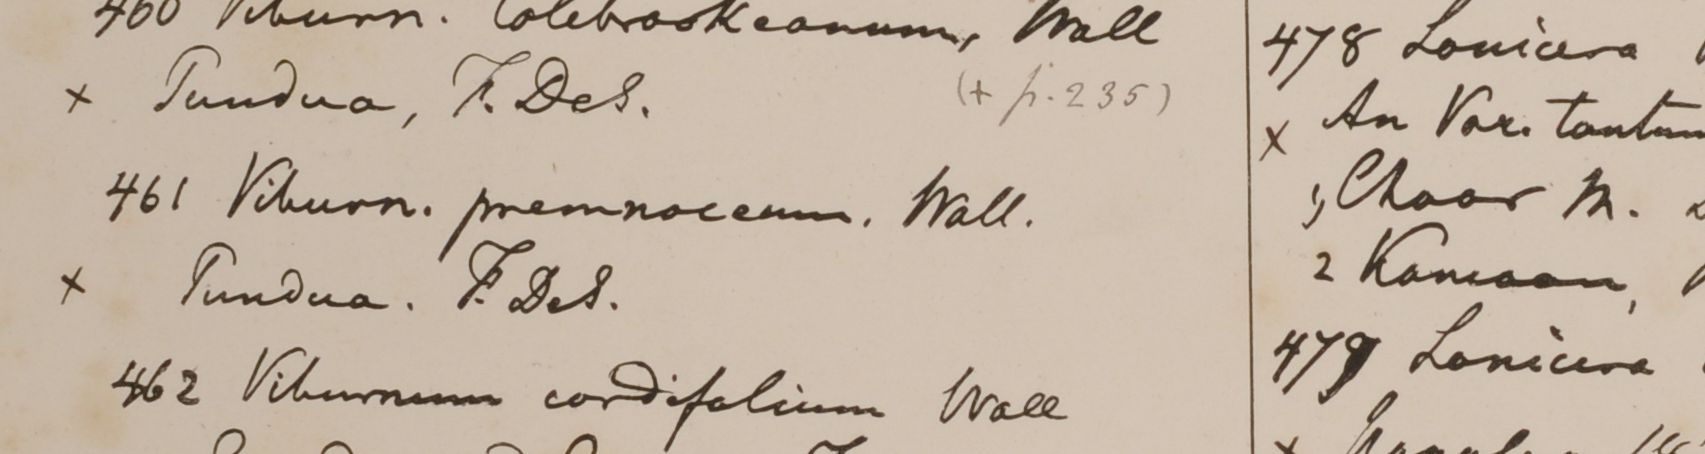 460 Viburn. Colebrookeanum, Wall
× Pundua, F. DeS.
(+ p. 235)
461 Viburn. premnaceum. Wall.
× Pundua. F. DeS.
462 Viburnum cordifolium Wall
478 Lonicera
× An Var. tantum
1, Chaor M.
2 Kamaon,
479 Lonicera
×